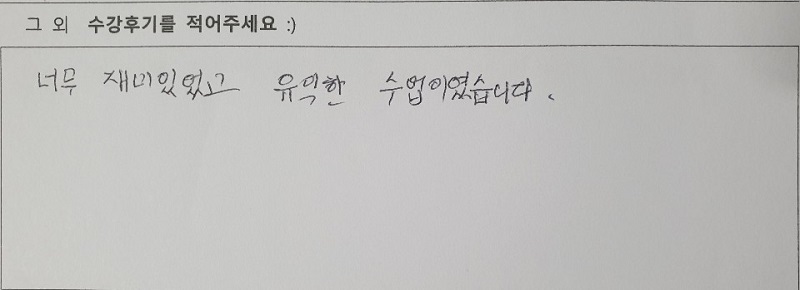 그 외 수강후기를 적어주세요 :)
너무 재미있었고 유익한 수업이였습니다.